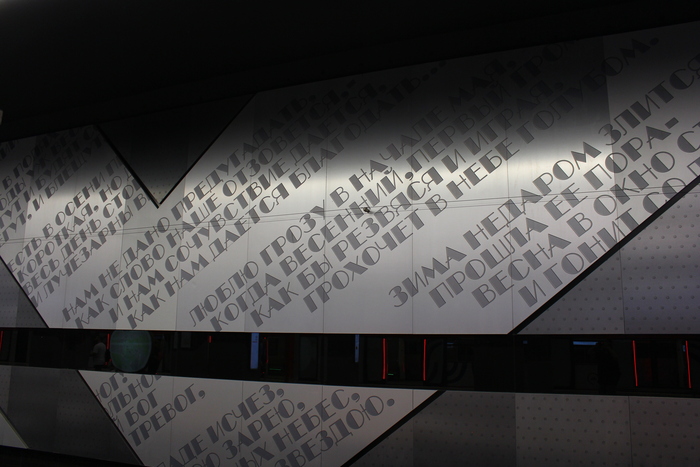 ЕСТЬ В ОСЕНИ
КОРОТКАЯ, НО
ВЕСЬ ДЕНЬ СТОИ
И ЛУЧЕЗАРНЫ В
НАМ НЕ ДАНО ПРЕДУГАДАТЬ,
КАК СЛОВО НАШЕ ОТЗОВЕТСЯ,
И НАМ СОЧУВСТВИЕ ДАЕТСЯ,
КАК НАМ ДАЕТСЯ БЛАГОДАТЬ...
ЛЮБЛЮ ГРОЗУ В НАЧАЛЕ МАЯ,
КОГДА ВЕСЕННИЙ, ПЕРВЫЙ ГРО
КАК БЫ РЕЗВЯСЯ И ИГРАЯ,
ГРОХОЧЕТ В НЕБЕ ГОЛУБОМ.
ЗИМА НЕДАРОМ ЗЛИТСЯ
ПРОШЛА ЕЕ ПОРА-
ВЕСНА В ОКНО С
И ГОНИТ СО
ОГ.
ЛЬНО
БОГ
ТРЕВОГ,
АДЕ ИСЧЕЗ,
Ю ЗАРЕЮ,
ЫХ НЕБЕС,
ЗВЕЗДОЮ.